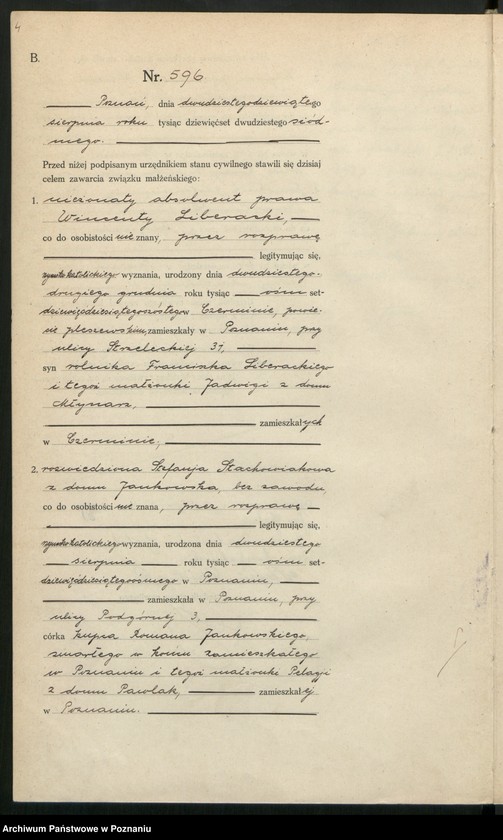 4
B.
Nr. 596
Poznań, dnia dwudziestegodziewiątego
sierpnia roku tysiąc dziewięćset dwudziestego siód-
mego.
Przed niżej podpisanym urzędnikiem stanu cywilnego stawili się dzisiaj
celem zawarcia związku małżeńskiego:
1. nieżonaty absolwent prawa
Wincenty Liberacki,
co do osobistości nie znany, przez rozprawę
legitymując się,
rzymskokatolickiego wyznania, urodzony dnia dwudziestego-
drugiego grudnia roku tysiąc ośm set-
dziewięćdziesiątegoszóstego w Czerminie, powie-
cie pleszewskim, zamieszkały w Poznaniu, przy
ulicy Strzeleckiej 31,
syn rolnika Franciszka Liberackiego
i tegoż małżonki Jadwigi z domu
Młynarz,
zamieszkałych
w Czerminie,
2. rozwiedziona Stefanja Stachowiakowa
z domu Jankowska, bez zawodu,
co do osobistości nie znana, przez rozprawę
legitymując się,
rzymskokatolickiego wyznania, urodzona dnia dwudziestego
sierpnia roku tysiąc ośm set-
dziewięćdziesiątegoósmego w Poznaniu,
zamieszkała w Poznaniu, przy
ulicy Podgórnej 3,
córka kupca Romana Jankowskiego,
zmarłego w końcu zamieszkałego
w Poznaniu i tegoż małżonki Pelagji
z domu Pawlak, zamieszkałej
w Poznaniu.
Archiwum Państwowe w Poznaniu